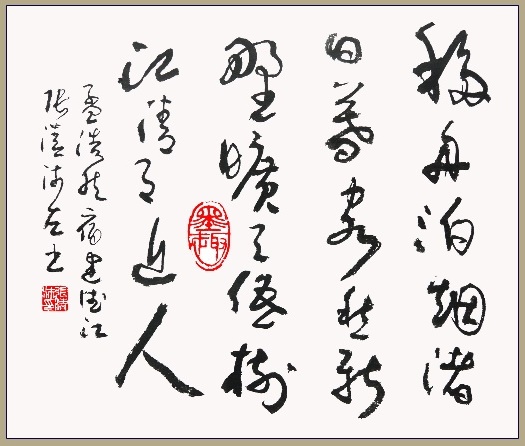 移舟泊烟渚
日暮客愁新
野曠天低樹
江清月近人
孟浩然宿建德江
左书
墨趣